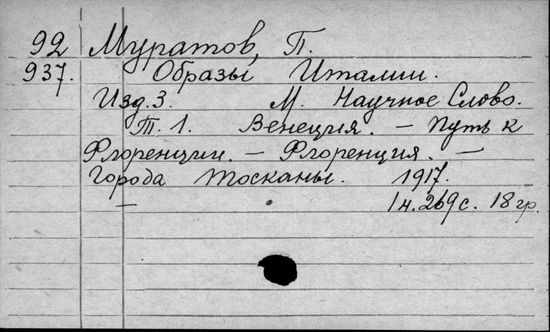 92 Муратов, П.
937. Образы Италии.
Изд. 3. М. Научное Слово.
Т. 1. Венеция. – Путь к
Флоренции. – Флоренция. –
Города Тосканы. 1917.
– 1 н. 269 с. 18 гр.